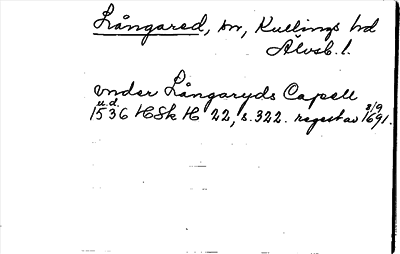 Långared, sn, Kullings hd
Älvsb. l.
under Långaryds Capell
u.d.
1536 HSk H 22, s. 322. regest av 3/9 1691.